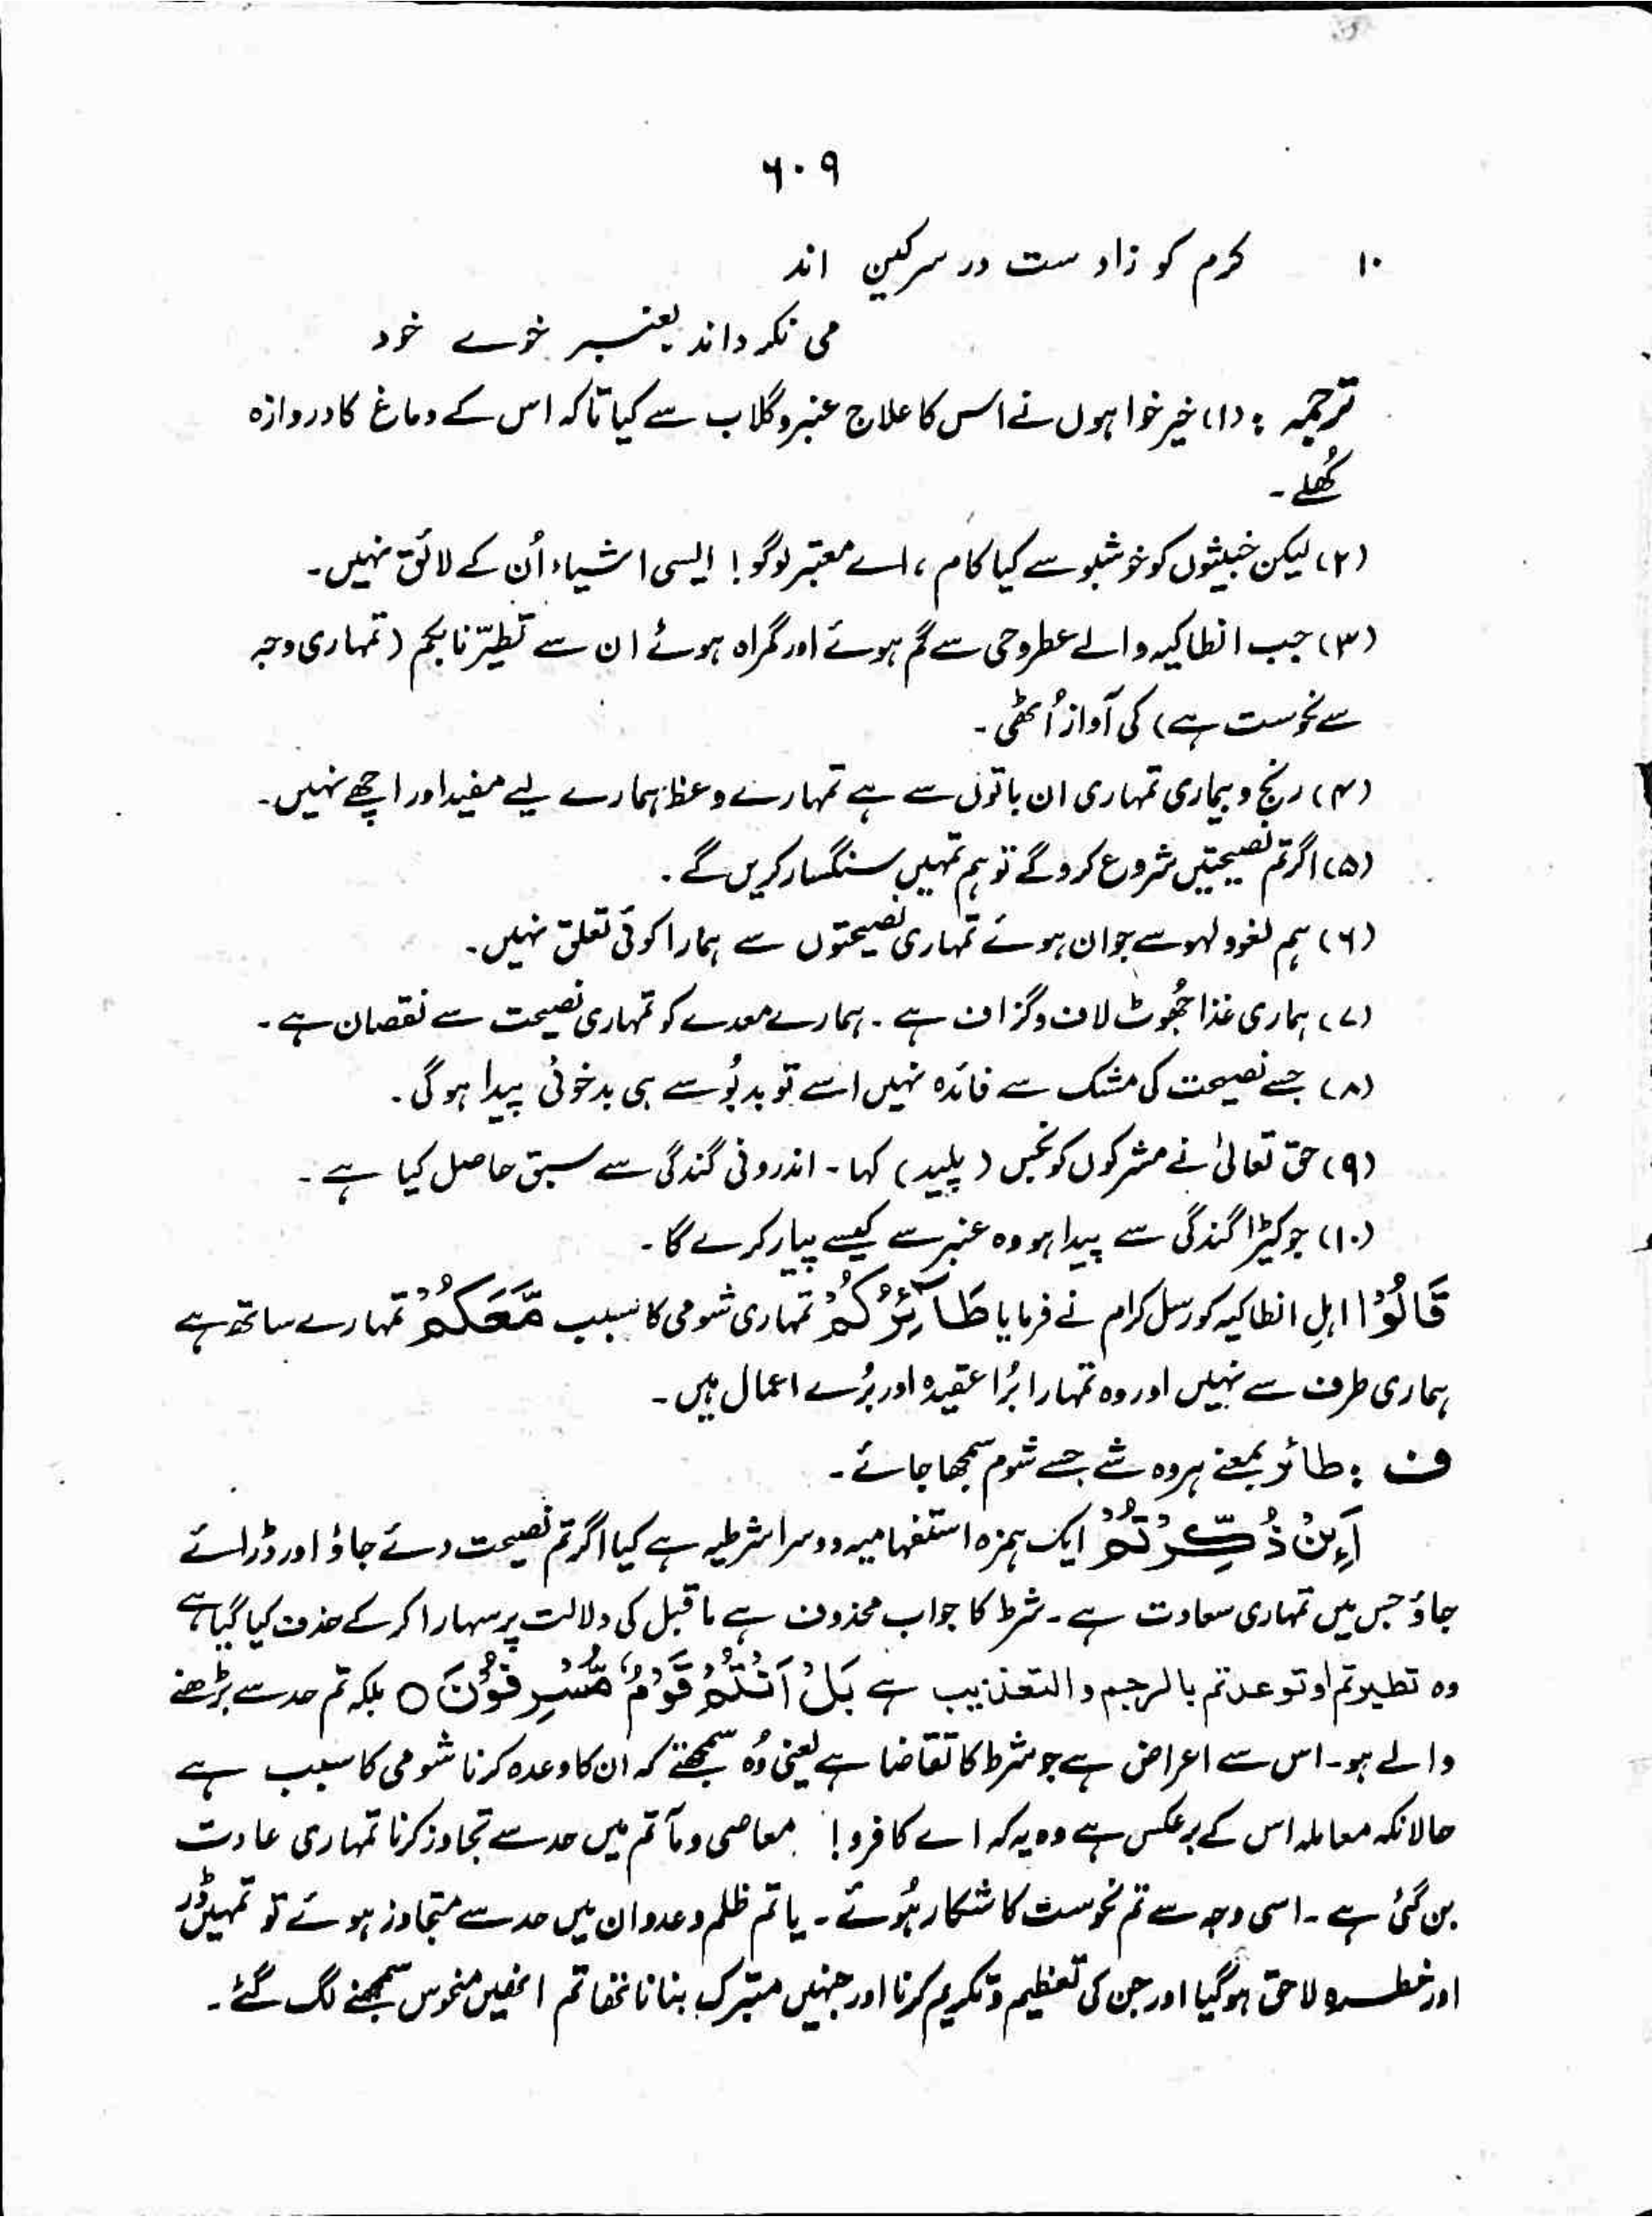 ۶۰۹
۱۰ کرم کو زاد ست در سرگین اند
می نگرداند بعنبر خوے خود
ترجمہ : (۱) خیر خواہوں نے اس کا علاج عنبر و گلاب سے کیا تاکہ اس کے دماغ کا دروازہ
کُھلے ۔
(۲) لیکن خبیثوں کو خوشبو سے کیا کام ، اے معتبر لوگو ! ایسی اشیاء اُن کے لائق نہیں ۔
(۳) جب انطاکیہ والے عطر وحی سے گم ہوئے اور گمراہ ہوئے ان سے تطیّرنا بکم ( تمہاری وجہ
سے نحوست ہے ) کی آواز اُٹھی ۔
(۴) رنج و بیماری تمہاری ان باتوں سے ہے تمہارے وعظ ہمارے لیے مفید اور اچھے نہیں ۔
(۵) اگر تم نصیحتیں شروع کرو گے تو ہم تمہیں سنگسار کریں گے ۔
(۶) ہم لغو و لہو سے جوان ہوئے تمہاری نصیحتوں سے ہمارا کوئی تعلق نہیں ۔
(۷) ہماری غذا جُھوٹ لاف و گزاف ہے ۔ ہمارے معدے کو تمہاری نصیحت سے نقصان ہے ۔
(۸) جسے نصیحت کی مشک سے فائدہ نہیں اسے تو بدبُو سے ہی بدخوئی پیدا ہوگی ۔
(۹) حق تعالیٰ نے مشرکوں کو نجس ( پلید ) کہا ۔ اندرونی گندگی سے سبق حاصل کیا ہے ۔
(۱۰) جو کیڑا گندگی سے پیدا ہو وہ عنبر سے کیسے پیار کرے گا ۔
قَالُوْا اہلِ انطاکیہ کو رسل کرام نے فرمایا طَآئِرُكُمْ تمہاری شومی کا سبب مَّعَكُمْ تمہارے ساتھ ہے
ہماری طرف سے نہیں اور وہ تمہارا بُرا عقیدہ اور بُرے اعمال ہیں ۔
ف : طائر بمعنے ہر وہ شے جسے شوم سمجھا جائے ۔
اَءِنْ ذُكِّرْتُمْ ایک ہمزہ استفہامیہ دوسرا شرطیہ ہے کیا اگر تم نصیحت دئے جاؤ اور ڈرائے
جاؤ جس میں تمہاری سعادت ہے ۔ شرط کا جواب محذوف ہے ماقبل کی دلالت پر سہارا کرکے حذف کیا گیا ہے
وہ تطیرتم او توعدتم بالرجم والتعذیب ہے بَلْ اَنْتُمْ قَوْمٌ مُّسْرِفُوْنَ ○ بلکہ تم حد سے بڑھنے
والے ہو ۔ اس سے اعراض ہے جو شرط کا تقاضا ہے یعنی وُہ سمجھتے کہ ان کا وعدہ کرنا شومی کا سبب ہے
حالانکہ معاملہ اس کے برعکس ہے وہ یہ کہ اے کافرو ! معاصی و مآثم میں حد سے تجاوز کرنا تمہاری عادت
بن گئی ہے ۔ اسی وجہ سے تم نحوست کا شکار ہُوئے ۔ یا تم ظلم و عدوان میں حد سے متجاوز ہوئے تو تمہیں ڈر
اور خطرہ لاحق ہوگیا اور جن کی تعظیم و تکریم کرنا اور جنہیں متبرک بنانا تھا تم انھیں منحوس سمجھنے لگ گئے ۔